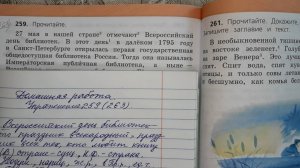 259. Прочитайте.
27 мая в нашей стране отмечают Всероссийский
день библиотек. В этот день в далёком 1795 году
в Санкт-Петербурге открылась первая государственная
общедоступная библиотека России. Тогда она называлась
Императорская публичная библиотека, а ныне
Домашняя работа.
Упражнение 259 (263)
Всероссийский день библиотек
это праздник всенародный
всех, кто любит книгу
261. Прочитайте. Докажите
Запишите заглавие и текст.
В необыкновенной тишине
на востоке зеленеет. Голуб
заре Венера. Это лучш
Спит вода, спят
птицы, и только совы лета
бесшумно, как комья бе